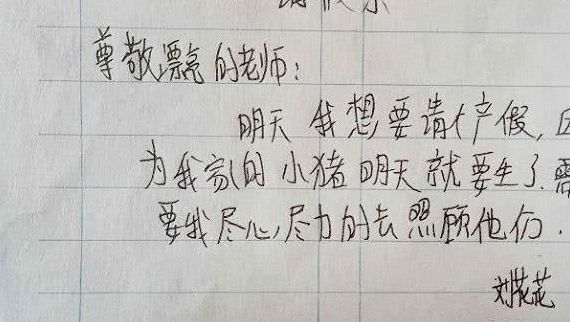 请假条
尊敬漂亮的老师：
明天我想要请产假，因
为我家的小猪明天就要生了.需
要我尽心,尽力的去照顾他们.
刘花花